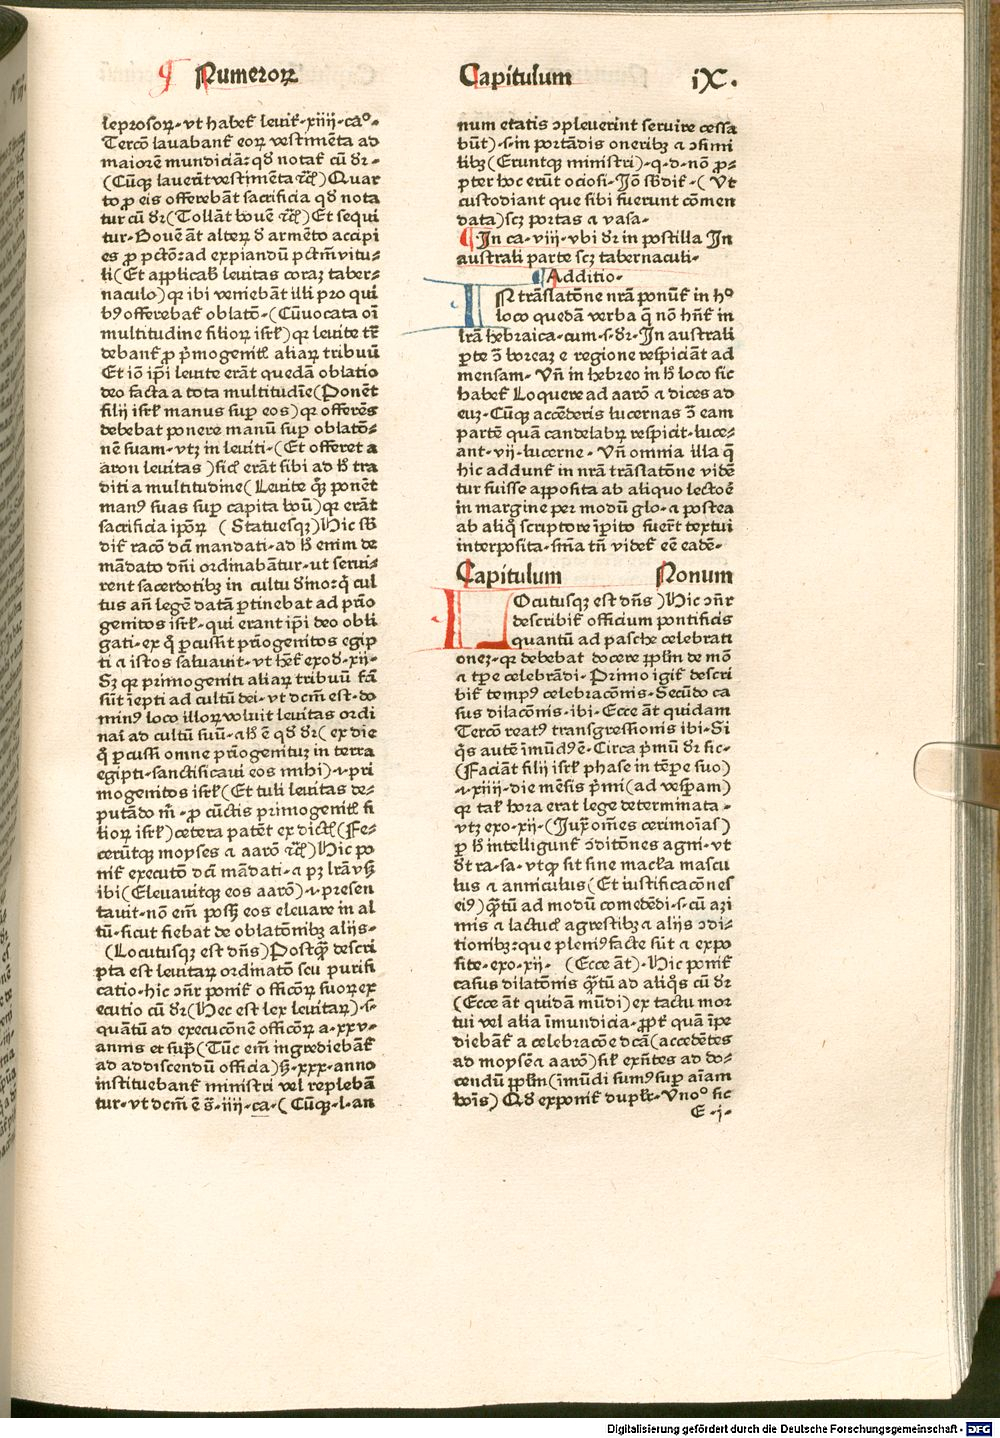 Numeroꝝ
Capitulum
iX.
leprosoꝝ·vt habet᷑ leuit᷑·xiiij·ca⁰·
Tercō lauabant᷑ eoꝝ vestimēta ad
maiorē mundiciā: qd̄ notat᷑ cū dr̄·
(Cūqꝫ lauerīt vestimēta ⁊cꝭ) Quar
to ꝓ eis offerebāt sacrificia qd̄ nota
tur cū dr̄ (Tollāt bouē ⁊cꝭ) Et sequi
tur·Bouē āt alteꝝ d̄ armēto accipi
es ꝓ pctō:ad expiandū pctm̄ vitu-
li (Et applicabꝭ leuitas coraꝫ taber-
naculo) qꝛ ibi veniebāt illi pro qui
bꝰ offerebat᷑ oblatō·(Cūuocata oī
multitudine filioꝝ isrl̄) qꝛ leuite tr̄
debant᷑ ꝓ p̄mogenitꝭ aliaꝝ tribuū
Et iō ip̄i leuite erāt quedā oblatio
deo facta a tota multitudīe (Ponēt
filij isrl̄ manus suꝑ eos) qꝛ offerēs
debebat ponere manū suꝑ oblatō-
nē suam·vtꝫ in leuiti·(Et offeret a
aron leuitas) sicꝭ erāt sibi ad h̄ tra
diti a multitudine (Leuite qͣꝫ ponēt
manꝰ suas suꝑ capita boū) qꝛ erāt
sacrificia ip̄oꝝ (Statuesqꝫ) Hic sb̄
dit᷑ racō dc̄i mandati·ad h̄ enim de
mādato dn̄i ordinabātur·ut serui-
rent sacerdotibꝫ in cultu diuino: qͥ cul
tus an̄ legē datā ꝑtinebat ad prio
genitos isrl̄·qui erant ip̄i deo obli
gati·ex qͦ ꝑcussit prīogenitos egip
ti ⁊ istos saluauit·vt hēt᷑ exod̄·xij·
Sꝫ qꝛ primogeniti aliaꝝ tribuū fc̄i
sūt īepti ad cultū dei·vt dcm̄ est·do
minꝰ loco illoꝝ voluit leuitas ordi
nari ad cultū suū·⁊ h̄ ē qd̄ dr̄ (ex die
qͦ ꝑcussi omne prīogenituꝫ in terra
egipti·sanctificaui eos mihi)·⁊·pri
mogenitos isrl̄ (Et tuli leuitas de-
putādo m̄·ꝓ cūctis primogenitꝭ fi
lioꝝ isrl̄) cetera patēt ex dictꝭ (Fe-
cerūtqꝫ moyses ⁊ aarō ⁊cꝭ) Hic po
nit᷑ executō dc̄i mādati·⁊ pꝫ lr̄a vsqꝫ
ibi (Eleuauitqꝫ eos aarō)·⁊·presen
tauit·nō em̄ possꝫ eos eleuare in al
tū·sicut fiebat de oblatōnibꝫ alijs·
(Locutusqꝫ est dn̄s) Postqͣꝫ descri
pta est leuitaꝝ ordinatō seu purifi
catio·hic ɔn̄r ponit᷑ officoꝝ suoꝝ ex
ecutio cū dr̄ (Hec est lex leuitaꝝ)·s·
quātū ad execucōnē officoꝝ a·xxv·
annis et supͣ (Tūc em̄ ingrediebāt᷑
ad addiscendū officia) sꝫ·xxx·anno
instituebant᷑ ministri vel replebā
tur·vt dcm̄ ē s̄·iiij·ca·(Cūqꝫ·l·an
num etatis ɔpleuerint seruire cessa
būt)·s·in portādis oneribꝫ ⁊ ɔsimi
libꝫ (Eruntqꝫ ministri)·q·d·nō ꝓ-
pter hoc erūt ociosi·Jō sb̄dit᷑·(Vt
custodiant que sibi fuerunt cōmen
data) scꝫ portas ⁊ vasa·
¶ In ca·viij·vbi dr̄ in postilla In
australi parte scꝫ tabernaculi·
¶ Additio·
IN trāslatōne nrā ponūt᷑ in hͦ
loco quedā verba q̄ nō hn̄t᷑ in
lrā hebraica·cum·s·dr̄·In australi
ꝑte ɔ̄ boreaꝫ e regione respiciāt ad
mensam·Vn̄ in hebreo in h̄ loco sic
habet᷑ Loquere ad aarō ⁊ dices ad
euꝫ·Cūqꝫ accēderis lucernas ɔ̄ eam
partē quā candelabꝝ respicit·luce-
ant·vij·lucerne·Vn̄ omnia illa q̄
hic addunt᷑ in nrā trāslatōne vidē
tur fuisse apposita ab aliquo lectoē
in margine per modū glo·⁊ postea
ab aliqͦ scriptore īꝑito fuer̄t textui
interposita·sm̄a tn̄ videt᷑ eē eadē·
Capitulum Nonum
LOcutusqꝫ est dn̄s) Hic ɔn̄r
describit᷑ officium pontificis
quantū ad pasche celebrati
oneꝫ·qꝛ debebat docere ppl̄m de mō
⁊ tꝑe celebrādi·Primo igit᷑ descri
bit᷑ tempꝰ celebracōnis·Secūdo ca
sus dilacōnis·ibi·Ecce āt quidam
Tercō reatꝰ transgressionis ibi·Si
qͥs autē īmūdꝰ ē·Circa p̄mū dr̄ sic·
(Faciāt filij isrl̄ phase in tēpe suo)
·⁊·xiiij·die mēsis p̄mi (ad vesꝑam)
qꝛ talꝭ hora erat lege determinata·
vtꝫ exo·xij·(Juxͣ om̄es cerimoīas)
ꝑ h̄ intelligunt᷑ ɔditōnes agni·vt
dr̄t ra·sa·vtqꝫ sit sine macl̄a mascu
lus ⁊ anniculus (Et iustificacōnes
eiꝰ) qͣtū ad modū comedēdi·s·cū aꝫi
mis ⁊ lactucꝭ agrestibꝫ ⁊ alijs ɔdi-
tionibꝫ: que pleniꝰ facte sūt ⁊ expo
site·exo·xij· (Ecce āt)·Hic ponit᷑
casus dilatōnis qͣtū ad aliqͦs cū dr̄
(Ecce āt quidā mūdi) ex tactu mor
tui vel alia īmundicia·ꝓpt᷑ quā īpe
diebāt᷑ a celebracōe dcā (accedētes
ad moysē ⁊ aarō) sil᷑ exn̄tes ad do-
cendū ppl̄m (īmūdi sumꝰ suꝑ aīam
hoīs) Qd̄ exponit᷑ dupl̄r·Vnoº sic
E·j·
Digitalisierung gefördert durch die Deutsche Forschungsgemeinschaft - DFG